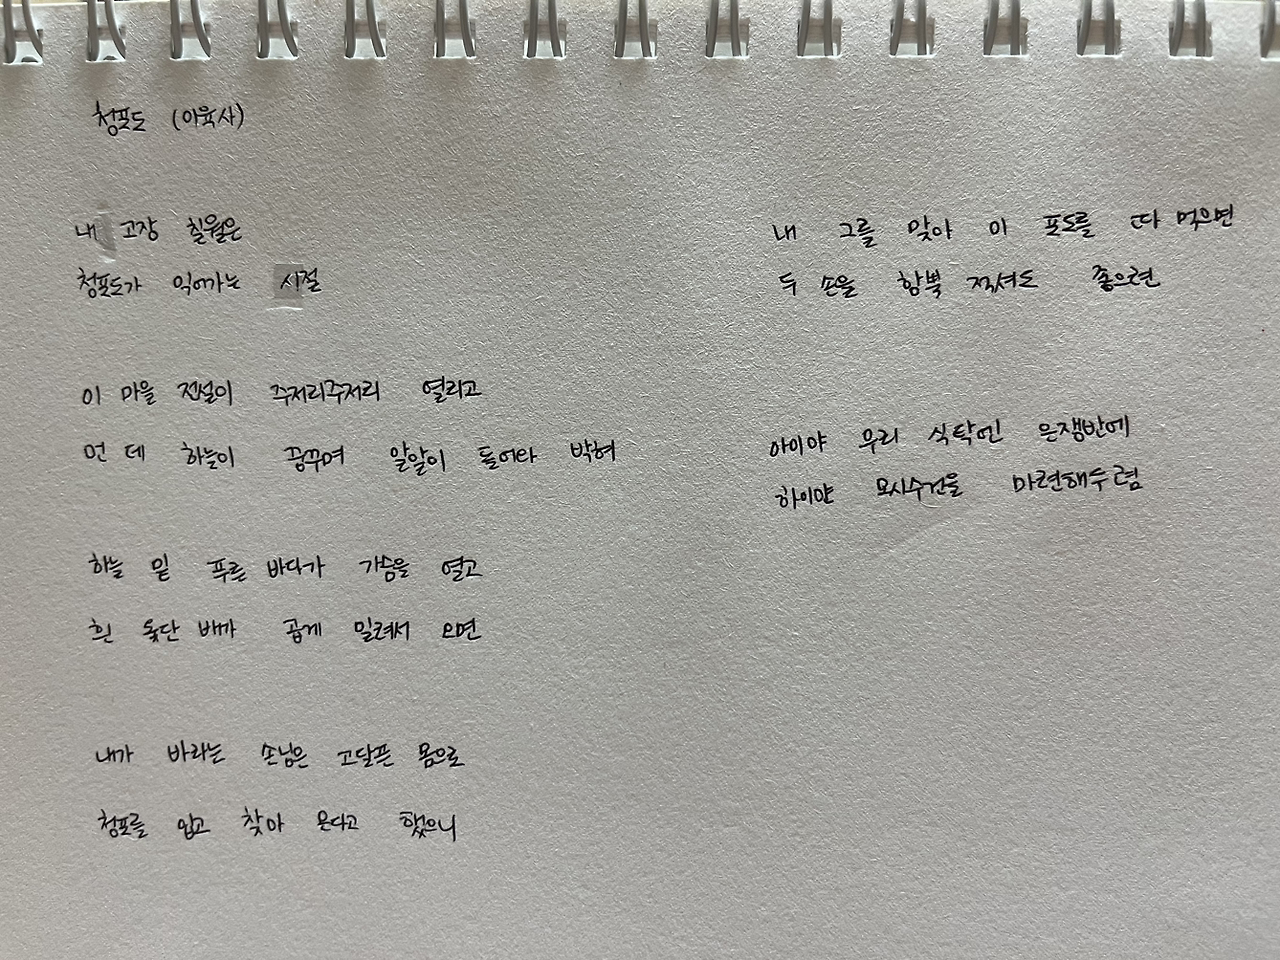 청포도 (이육사)
내 고장 칠월은
청포도가 익어가는 시절
이 마을 전설이 주저리주저리 열리고
먼 데 하늘이 꿈꾸며 알알이 들어와 박혀
하늘 밑 푸른 바다가 가슴을 열고
흰 돛단 배가 곱게 밀려서 오면
내가 바라는 손님은 고달픈 몸으로
청포를 입고 찾아 온다고 했으니
내 그를 맞아 이 포도를 따 먹으면
두 손을 함뿍 적셔도 좋으련
아이야 우리 식탁엔 은쟁반에
하이얀 모시수건을 마련해두렴